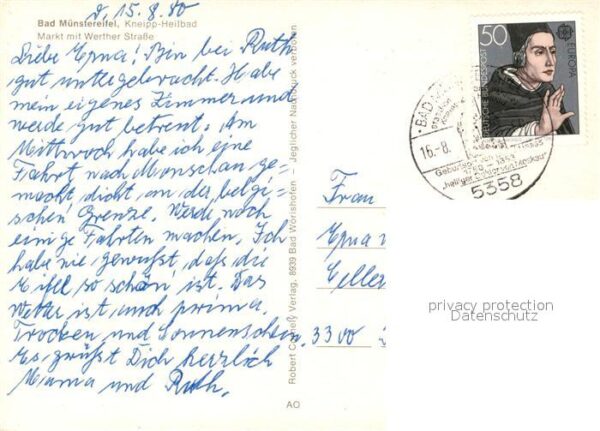 d, 15.8.80
Bad Münstereifel, Kneipp-Heilbad
Markt mit Werther Straße
Liebe Erna! Bin bei Ruth
gut untergebracht. Habe
mein eigenes Zimmer und
werde gut betreut. Am
Mittwoch habe ich eine
Fahrt nach Monschau ge-
macht, dicht an der belgi-
schen Grenze. Werde noch
einige Fahrten machen. Ich
habe nie gewußt, daß die
Eifel so schön ist. Das
Wetter ist auch prima.
Trocken und Sonnenschein.
Es grüßt Dich herzlich
Mama und Ruth.
Robert Verlag, 8939 Bad Wörishofen Jeglicher Nachdruck verboten
AO
50
DEUTSCHE BUNDESPOST
EUROPA
BAD
16.-8.
5358
Frau
Erna
Celler
3300
privacy protection
Datenschutz